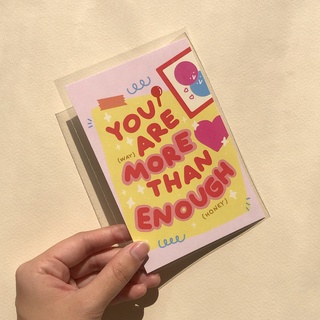 YOU
ARE
(WAY) MORE
THAN
ENOUGH
(HONEY)